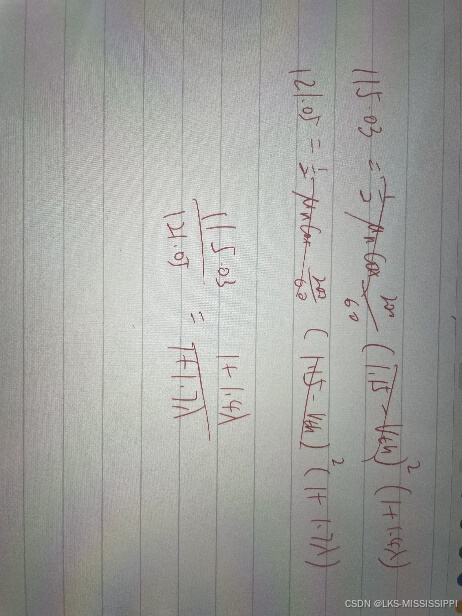 115.03 = 1/2 μnCox 200/60 (1.15 - Vth)² (1+1.4λ)
121.05 = 1/2 μnCox 200/60 (1.15 - Vth)² (1+1.7λ)
115.03/121.05 = 1+1.4λ/1+1.7λ
CSDN @LKS-MISSISSIPPI